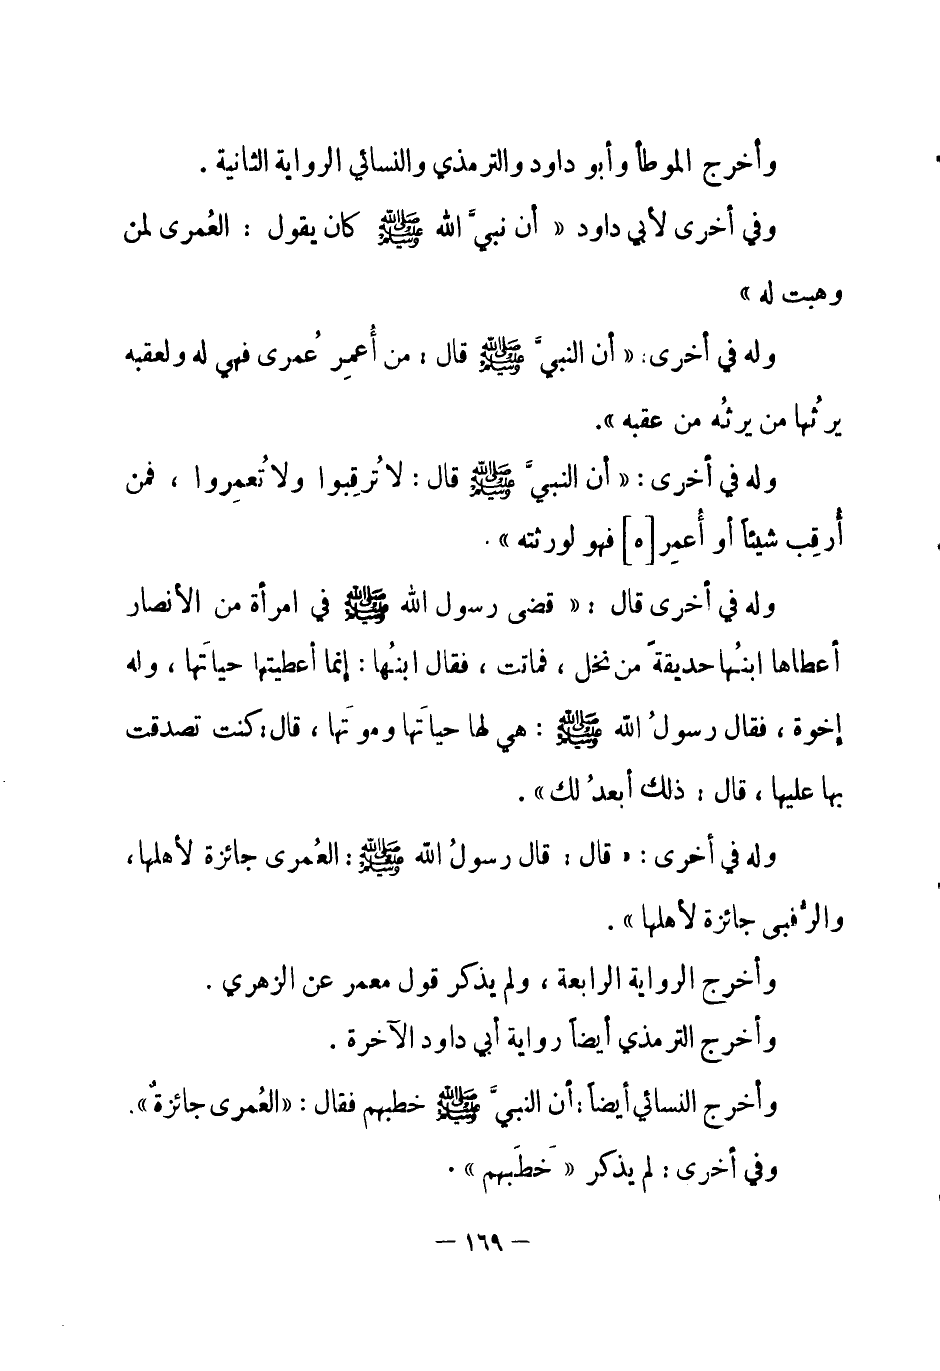 وأخرج الموطأ وأبو داود والترمذي والنسائي الرواية الثانية .
وفي أخرى لأبي داود « أن نبيَّ الله ﷺ كان يقول : العُمرى لمن
وهبت له »
وله في أخرى: « أن النبيَّ ﷺ قال : من أُعمِر عُمرى فهي له ولعقبه
يرثُها من يرثُه من عقبه ».
وله في أخرى : « أن النبيَّ ﷺ قال : لا تُرقِبوا ولا تُعمِروا ، فمن
أُرقِب شيئاً أو أُعمِر[ه] فهو لورثته » .
وله في أخرى قال : « قضى رسول الله ﷺ في امرأة من الأنصار
أعطاها ابنُها حديقةً من نخل ، فماتت ، فقال ابنُها : إنما أعطيتها حياتَها ، وله
إخوة ، فقال رسولُ الله ﷺ : هي لها حياتَها وموتَها ، قال : كنت تصدقت
بها عليها ، قال : ذلك أبعدُ لك » .
وله في أخرى : « قال : قال رسولُ الله ﷺ : العُمرى جائزة لأهلها ،
والرُّقبى جائزة لأهلها » .
وأخرج الرواية الرابعة ، ولم يذكر قول معمر عن الزهري .
وأخرج الترمذي أيضاً رواية أبي داود الآخرة .
وأخرج النسائي أيضاً : أن النبيَّ ﷺ خطبهم فقال : «العُمرى جائزةٌ».
وفي أخرى : لم يذكر « خَطَبهم » .
— ١٦٩ —